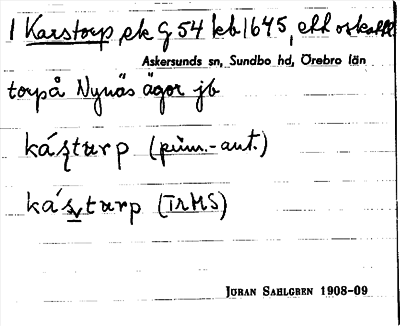 1 Karstorp, ek G 54 kb 1645, ett oskattl
Askersunds sn, Sundbo hd, Örebro län
torp å Nynäs ägor jb
ká turp (prim.-ant.)
ká turp (TRMS)
JÖRAN SAHLGREN 1908-09